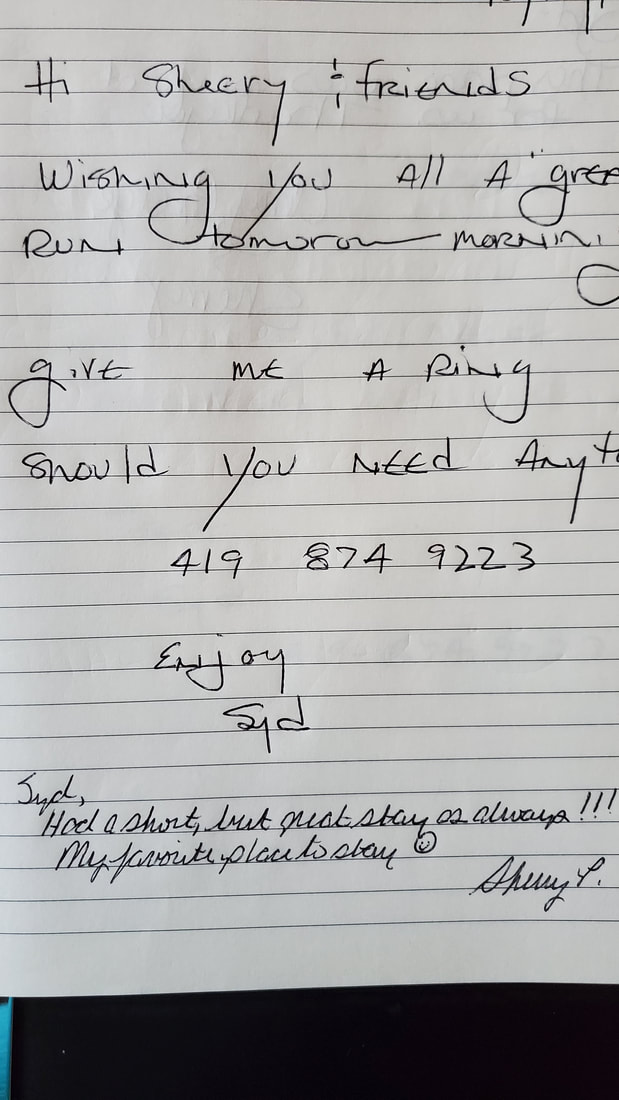 Hi Sheery & friends
Wishing you All A "grea
Run tomorow morning
give me A Ring
Should you need Anyt
419 874 9223
Enjoy
Syd
Syd,
Had a short, but great stay as always!!!
My favorite place to stay ☺
Sherry P.